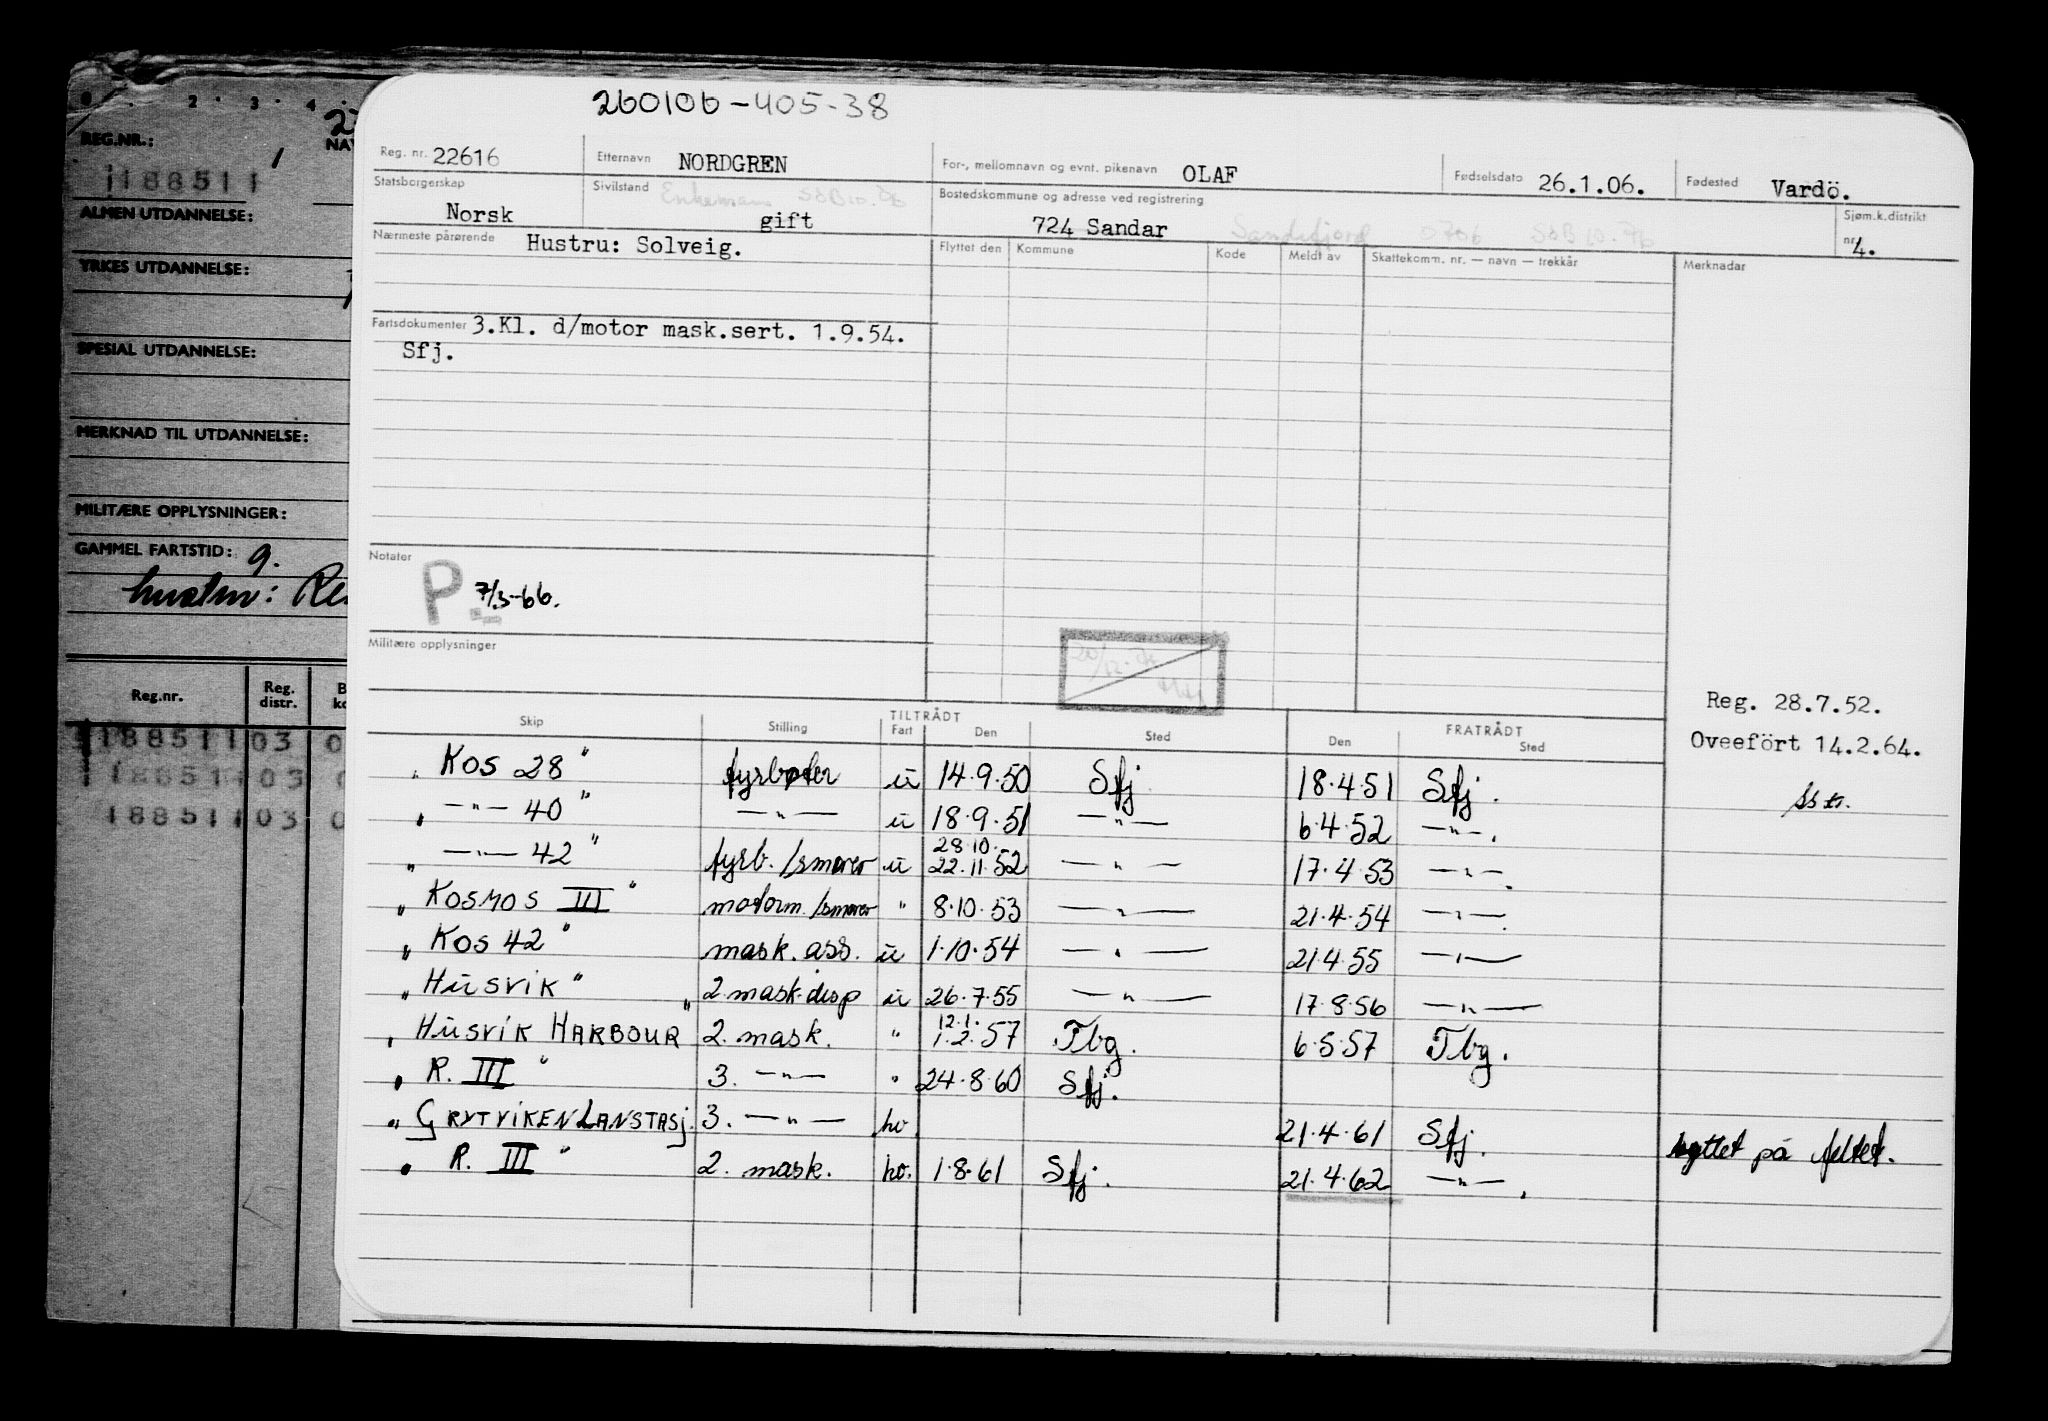 260106-405-38
Reg. nr. 22616 Etternavn NORDGREN For-, mellomnavn og evnt. pikenavn OLAF Fødselsdato 26.1.06. Fødested Vardö.
Statsborgerskap Norsk Sivilstand Enkemann SØB 10. gift Bostedskommune og adresse ved registrering 724 Sandar Sandefjord 0706 SØB 10. Sjøm.k.distrikt nr. 4.
Nærmeste pårørende Hustru: Solveig. Flyttet den Kommune Kode Meldt av Skattekomm. nr. — navn — trekkår Merknadar
Fartsdokumenter 3.Kl. d/motor mask.sert. 1.9.54.
Sfj.
Notater
P. 7/3-66.
Militære opplysninger
Reg. 28.7.52.
Oveefört 14.2.64.
TILTRÅDT FRATRÅDT
Skip Stilling Fart Den Sted Den Sted
„ KOS 28 " fyrbøter u 14.9.50 Sfj. 18.4.51 Sfj.
„ —"— 40 " —"— u 18.9.51 —"— 6.4.52 —"—.
28.10.
„ —"— 42 " fyrb./smører u 22.11.52 —"— 17.4.53 —"—.
„ KOSMOS III " motorm./smører " 8.10.53 —"— 21.4.54 —"—.
„ KOS 42 " mask. ass. u 1.10.54 —"— 21.4.55 —"—
„ HUSVIK " 2. mask. disp u 26.7.55 —"— 17.8.56 —"—
12.1.
„ HUSVIK HARBOUR " 2. mask. " 1.2.57 Tbg. 6.5.57 Tbg.
„ R. III " 3. —"— " 24.8.60 Sfj.
„ GRYTVIKEN LANSTASJ. 3. —"— ho 21.4.61 Sfj. byttet på feltet.
„ R. III " 2. mask. ho. 1.8.61 Sfj. 21.4.62 —"—.
0 . 2 . 3 . 4 .
REG.NR.:
1188511
ALMEN UTDANNELSE:
YRKES UTDANNELSE:
SPESIAL UTDANNELSE:
MERKNAD TIL UTDANNELSE:
MILITÆRE OPPLYSNINGER:
GAMMEL FARTSTID: 9.
hustru:
Reg.nr. Reg. distr.
1188511 03 0
1188511 03 0
1188511 03 0